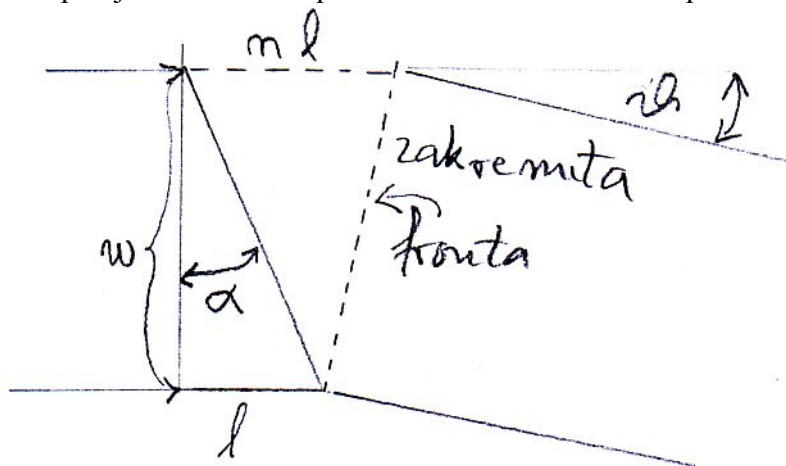 n l
ϑ
zakrenuta
fronta
w
α
l